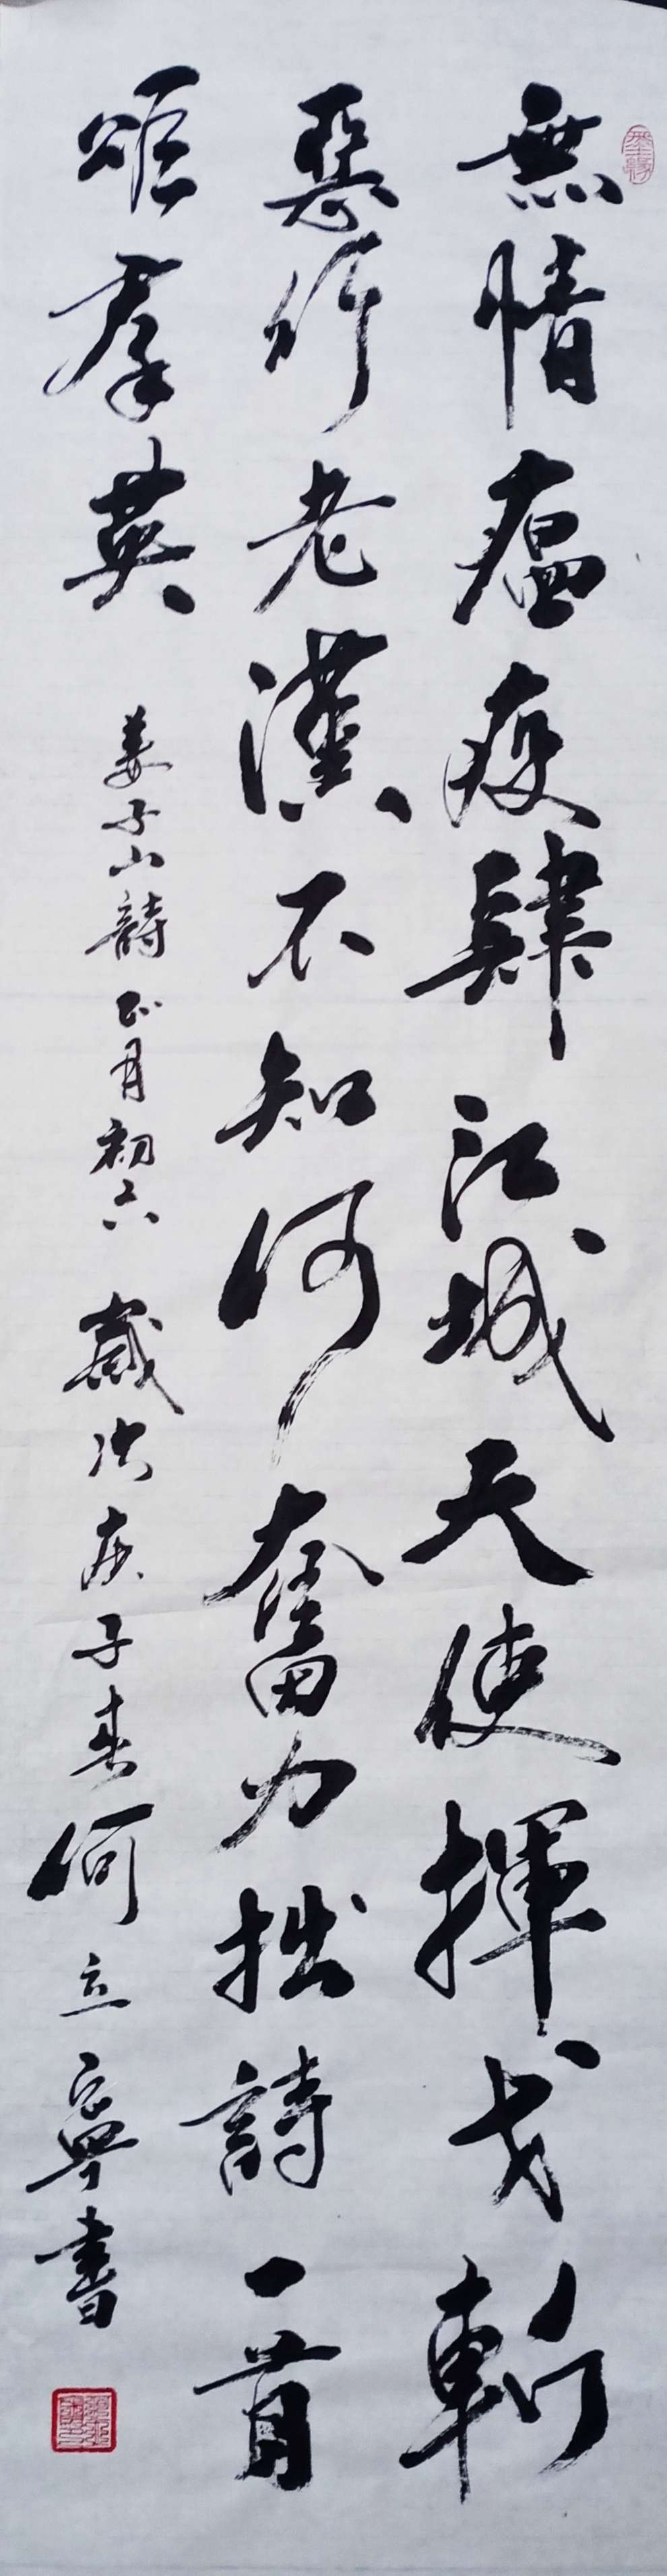 無情瘟疫肆江城天使揮戈斬
惡行老漢不知何奮力拙詩一首
頌羣英
姜子山詩正月初六歲次庚子春何立寧書
墨緣